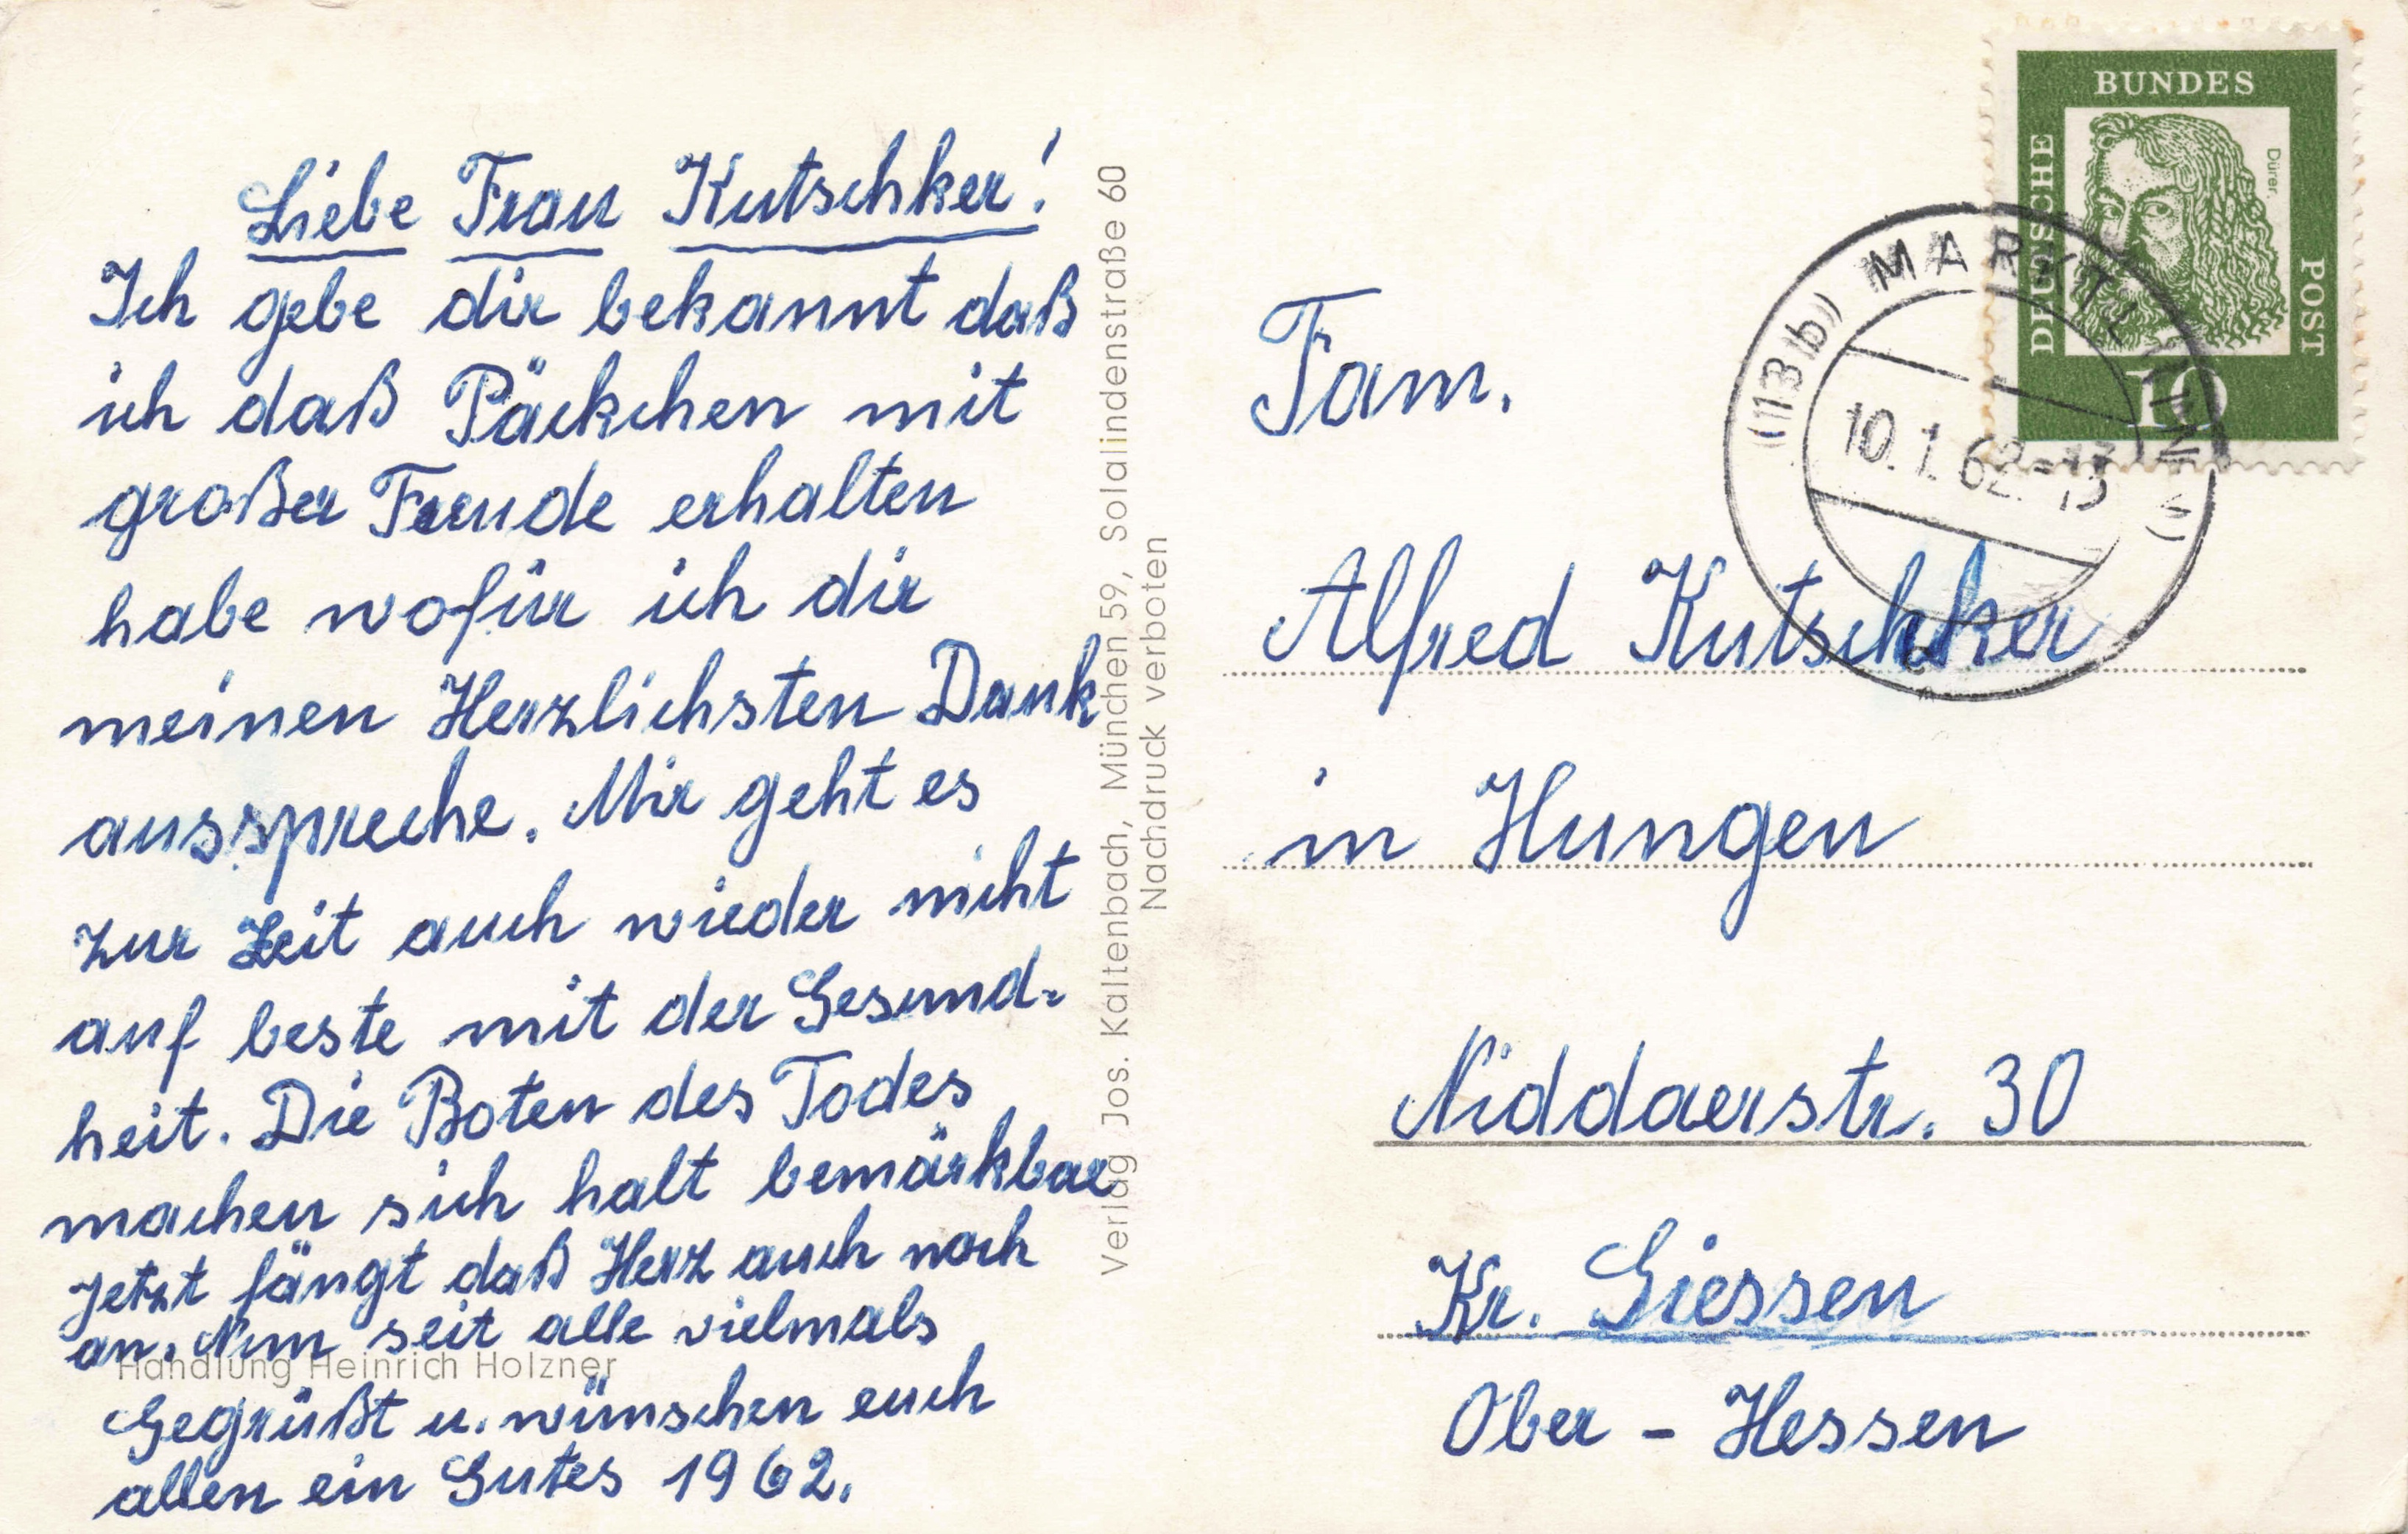 Liebe Frau Kutschker!
Ich gebe dir bekannt daß
ich daß Päckchen mit
großer Freude erhalten
habe wofür ich dir
meinen Herzlichsten Dank
ausspreche. Mir geht es
zur Zeit auch wieder nicht
auf beste mit der Gesund-
heit. Die Boten des Todes
machen sich halt bemärkbar
Jetzt fängt daß Herz auch noch
an. Nun seit alle vielmals
Gegrüßt u. wünschen euch
allen ein Gutes 1962.
Handlung Heinrich Holzner
Verlag Jos. Kaltenbach, München 59, Solalindenstraße 60
Nachdruck verboten
DEUTSCHE
BUNDES
POST
Dürer
10
(13b) MARKTL (INN)
10.1.62-13
Fam.
Alfred Kutschker
in Hungen
Niddaerstr. 30
Kr. Giessen
Ober - Hessen